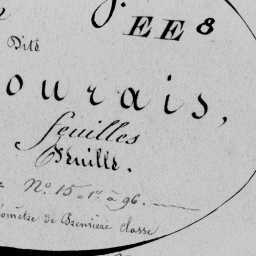 EE 8
Dité
ourais,
feuilles
Feuille.
N.º 15. 1.º à 96.
omètre de Premiere Classe